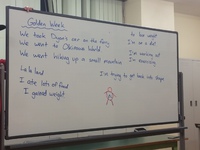 Golden Week
We took Dagan's car on the ferry
We went to Okinawa World
We went hiking up a small mountain
to be bad
I ate lots of food
I gained weight
to lose weight
I'm on a diet
I'm working out
I'm exercising
I'm trying to get back into shape